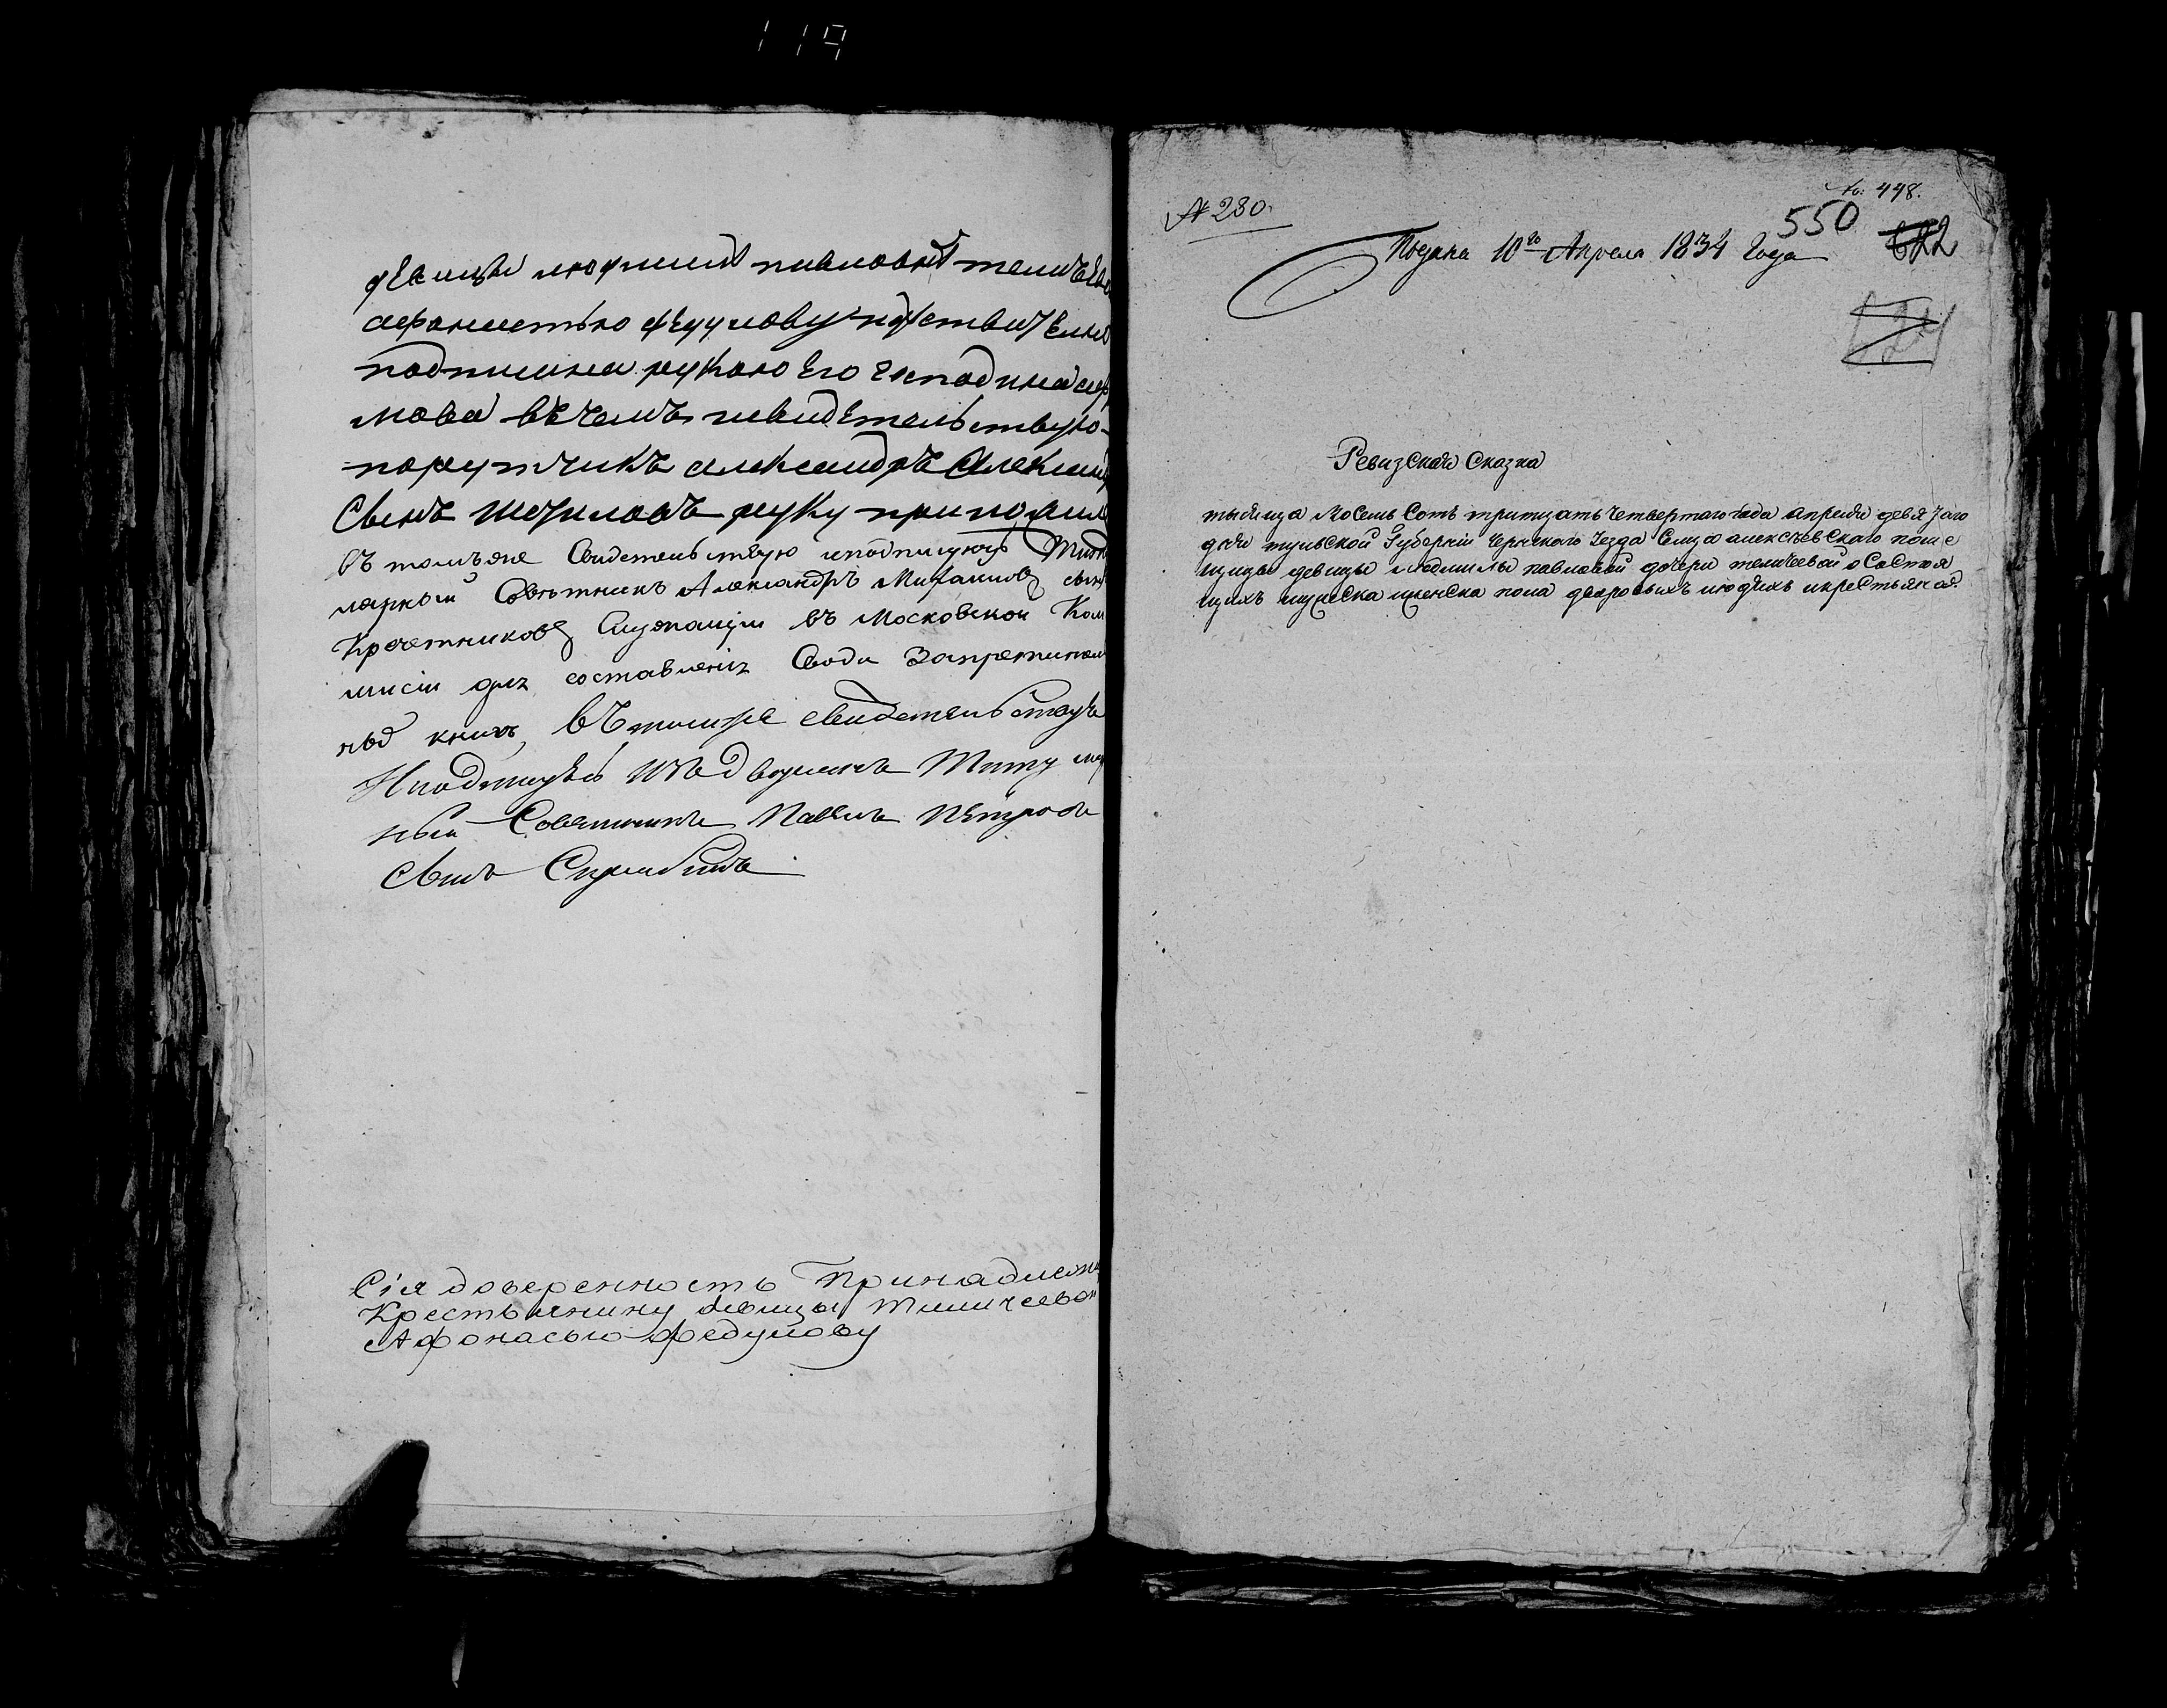 119
девицы людмилы павловны теличеево
афонасью федулову действително
подписана рукою Его господина
мова въ чемъ исвидетельствую
порутчикъ александръ Алексан
Сынъ рутку приложилъ
Въ томъ же Свидетельствую иподписуюсь Титу
лярный Советникъ Александръ Михаиловъ сынъ
Кречетниковъ Служащии въ Московской Ком
мисіи для составленія Свода Запретител
ныхъ книгъ, Въ томже свидетельствую
Иподписуюсь Надворныи Титуляр
ный Советникъ Павелъ Петровъ
Сынъ
Сія доверенность Принадлежи
Крестьянину девицы Теличеевои
Афонасью Федулову
№ 280.
448.
550
Подана 10го Апреля 1834 Года
Ревизская Сказка
тысяща Восемь Сотъ тритцать Четвертаго года апреля девятаго
дня тульской Губерніи Чернскаго Уезда Сельца алексеевскаго поме
щицы девицы людмилы павловой дочери теличеевой о Состоя
щихъ мужеска иженска пола дворовыхъ людяхъ икрестьянахъ